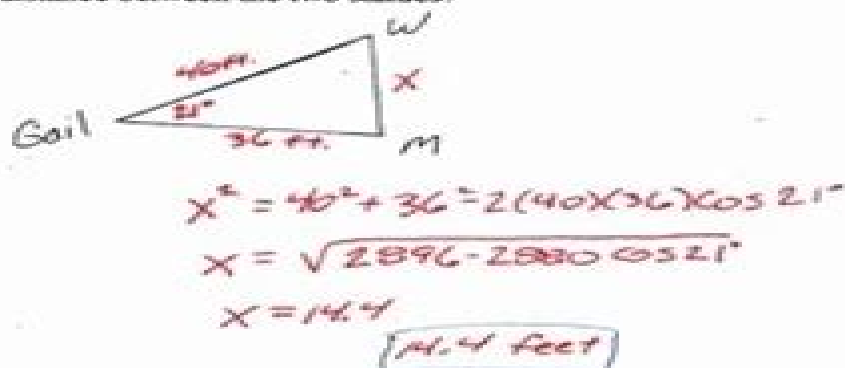 W
40 ft.
x
21°
Gail
36 ft.
M
x² = 40² + 36² - 2(40)(36)cos 21°
x = √2896 - 2880 cos 21°
x = 14.4
14.4 feet